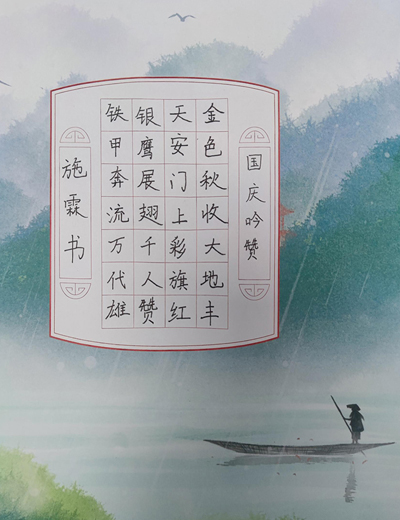 国庆吟赞
金色秋收大地丰
天安门上彩旗红
银鹰展翅千人赞
铁甲奔流万代雄
施霖书